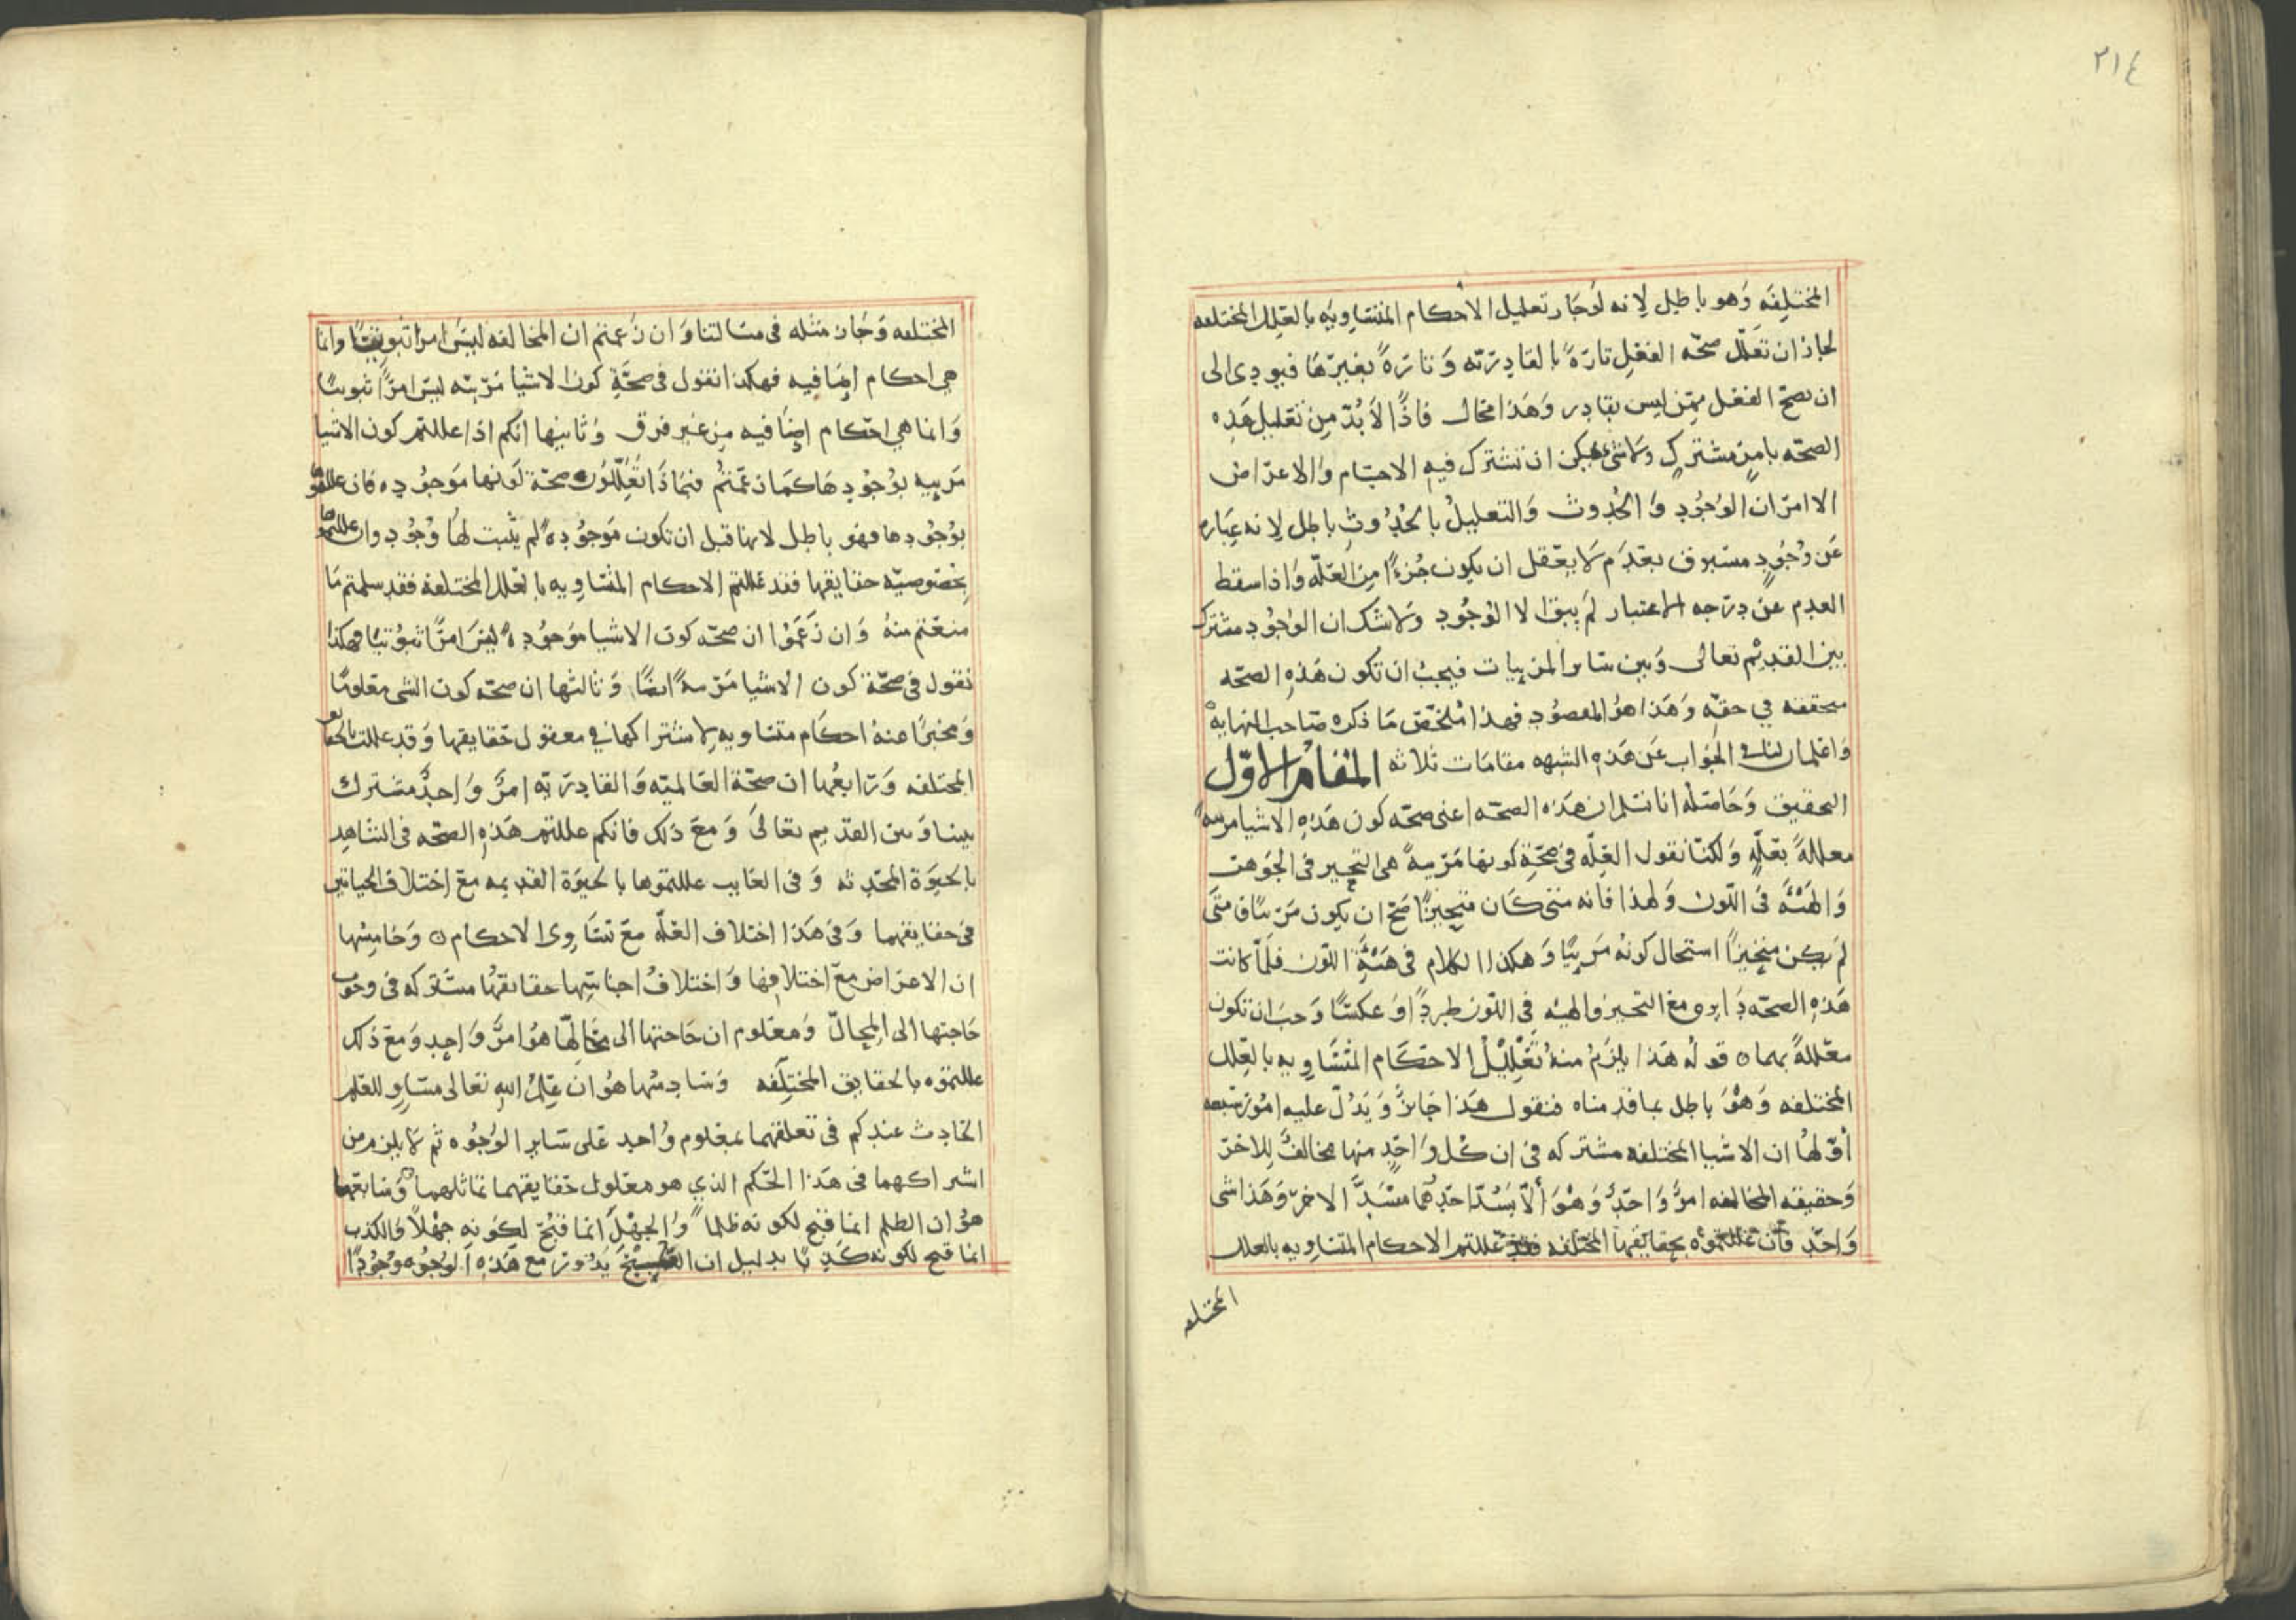 ٢١٤
المختلفه وهو باطل لانه لو جاز تعليل الاحكام المتساويه بالعلل المختلفه
لجاز ان تعلل صحه الفعل تارة بالقادريه وتارة بغيرها فيودى الى
ان يصح الفعل ممن ليس بقادر وهذا محال فاذا لا بد من تعليل هذه
الصحه بامر مشترك ولا شى يمكن ان تشترك فيه الاجسام والاعراض
الا امران الوجود والحدوث والتعليل بالحدوث باطل لانه عباره
عن وجود مسبوق بعدم لا يعقل ان يكون جزءا من العله واذا سقط
العدم عن درجه الاعتبار لم يبق الا الوجود ولا شك ان الوجود مشترك
بين القديم تعالى وبين ساير المرييات فيجب ان تكون هذه الصحه
محققه في حقه وهذا هو المقصود فهذا ملخص ما ذكره صاحب النهايه
واعلم ان لنا في الجواب عن هذه الشبهه مقامات ثلاثه المقام الاول
التحقيق وحاصله انا نسلم ان هذه الصحه اعنى صحه كون هذه الاشيا مرييه
معللة بعله ولكنا نقول العله فى صحة كونها مرييه هى التحيز فى الجوهر
والهيئة فى اللون ولهذا فانه متى كان متحيزا صح ان يكون مرييا ومتى
لم يكن متحيزا استحال كونه مرييا وهكذا الكلام فى هيئة اللون فلما كانت
هذه الصحه دايره مع التحيز والهيئه فى اللون طردا وعكسا وجب ان تكون
معللة بهما ٥ قوله هذا يلزم منه تعليل الاحكام المتساويه بالعلل
المختلفه وهو باطل بما قدمناه فنقول هذا جايز ويدل عليه امور سبعه
اولها ان الاشيا المختلفه مشتركه فى ان كل واحد منها مخالف للاخر
وحقيقه المخالفه امر واحد وهو الا يسد احدهما مسد الاخر وهذا شى
واحد فان عللتموه بحقايقها المختلفه فقد عللتم الاحكام المتساويه بالعلل
المختلفه
المختلفه وجاز مثله فى مسالتنا وان زعمتم ان المخالفه ليس امرا ثبوتيا وانما
هي احكام اضافيه فهكذا نقول فى صحة كون الاشيا مرييه ليس امرا ثبوتيا
وانما هي احكام اضافيه من غير فرق وثانيها انكم اذا عللتم كون الاشيا
مرييه بوجودها كما زعمتم فبماذا تعللون صحة كونها موجوده فان عللتموها
بوجودها فهو باطل لانها قبل ان تكون موجوده لم يثبت لها وجود وان عللتموها
بخصوصيه حقايقها فقد عللتم الاحكام المتساويه بالعلل المختلفه فقد سلمتم ما
منعتم منه وان زعموا ان صحه كون الاشيا موجوده ليس امرا ثبوتيا فهكذا
نقول فى صحة كون الاشيا مرييه ايضا وثالثها ان صحه كون الشى معلوما
ومخبرا عنه احكام متساويه لاشتراكها في معقول حقايقها وقد عللت بالحقايق
المختلفه ورابعها ان صحة العالميه والقادريه امر واحد مشترك
بيننا وبين القديم تعالى ومع ذلك فانكم عللتم هذه الصحه فى الشاهد
بالحيوة المحدثه وفى الغايب عللتموها بالحيوة القديمه مع اختلاف الحياتين
فى حقايقهما وفى هذا اختلاف العله مع تساوى الاحكام ٥ وخامسها
ان الاعراض مع اختلافها واختلاف اجناسها حقايقها مشتركه فى وجوب
حاجتها الى المحال ومعلوم ان حاجتها الى محالها هو امر واحد ومع ذلك
عللتموه بالحقايق المختلفه وسادسها هو ان علم الله تعالى مساو للعلم
الحادث عندكم فى تعلقهما بمعلوم واحد على ساير الوجوه ثم لا يلزم من
اشتراكهما فى هذا الحكم الذي هو معلول حقايقهما تماثلهما وسابعها
هو ان الظلم انما قبح لكونه ظلما والجهل انما قبح لكونه جهلا والكذب
انما قبح لكونه كذبا بدليل ان القبح يدور مع هذه الوجوه وجودا